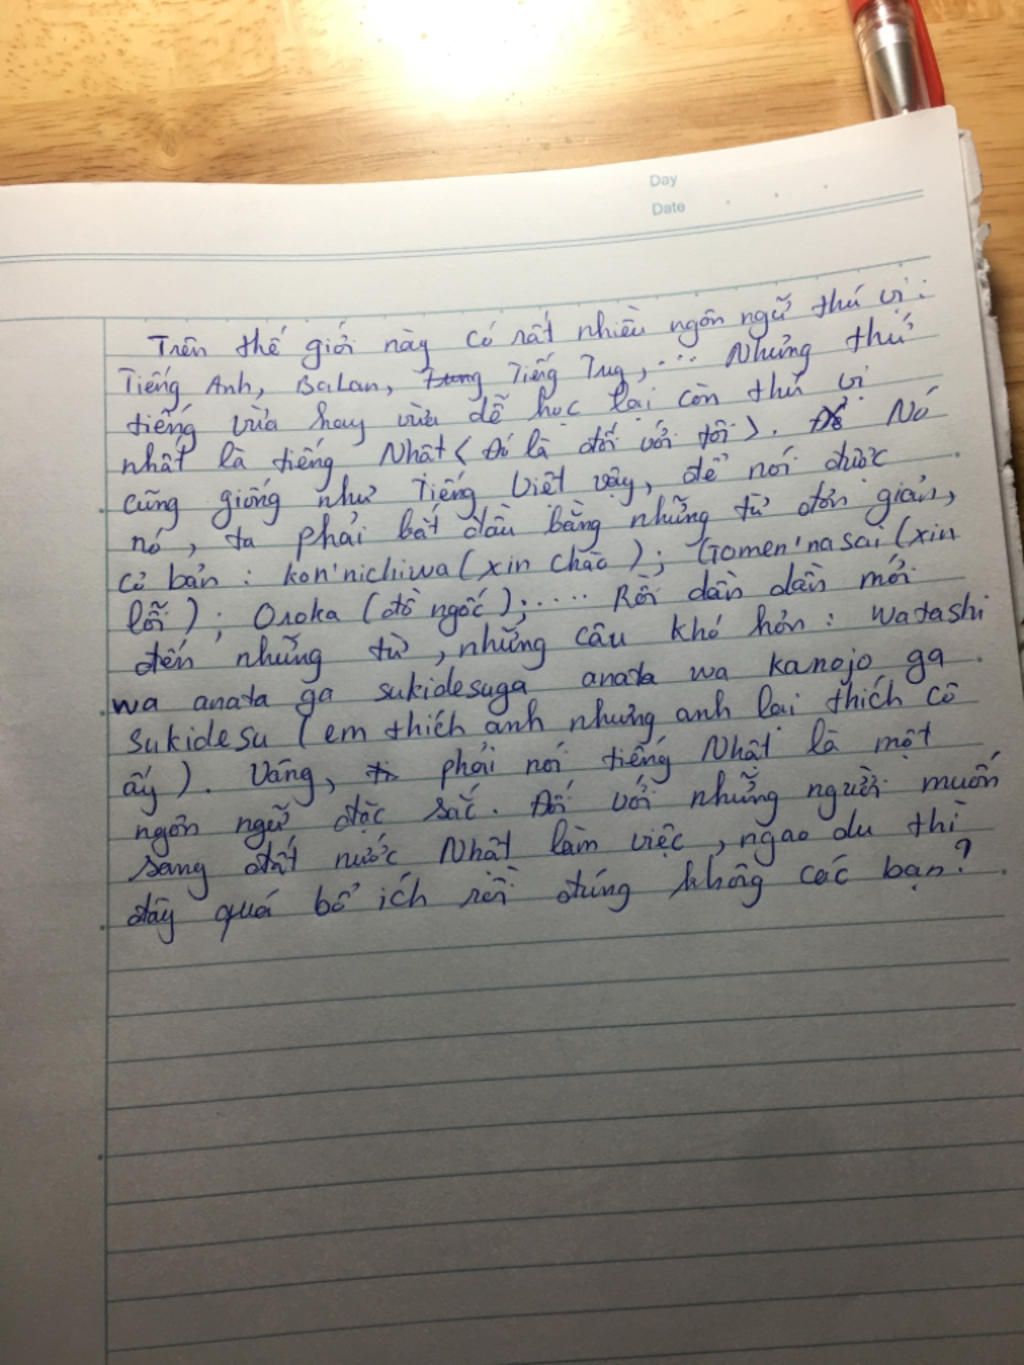 Day
Date
Trên thế giới này có rất nhiều ngôn ngữ thú vị:
Tiếng Anh, BaLan, Tiếng Trug,... Nhưng thứ
tiếng vừa hay vừa dễ học lại còn thú vị
nhất là tiếng Nhật < Đó là đối với tôi >. Nó
cũng giống như Tiếng Việt vậy, để nói được
nó, ta phải bắt đầu bằng những từ đơn giản,
cơ bản: kon'nichiwa (xin chào); Gomen'nasai (xin
lỗi); Oroka (đồ ngốc);.... Rồi dần dần mới
đến những từ, những câu khó hơn: watashi
wa anata ga sukidesuga anata wa kanojo ga
sukidesu (em thích anh nhưng anh lai thích cô
ấy). Vâng, phải nói tiếng Nhật là một
ngôn ngữ đặc sắc. Đối với những người muốn
sang đất nước Nhật làm việc, ngao du thì
đây quá bổ ích rồi đúng không các bạn?